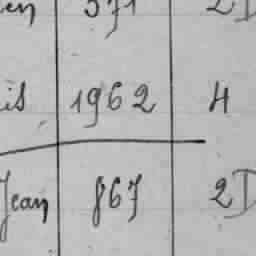 en 571 2D
is 1962 4
Jean 867 2D